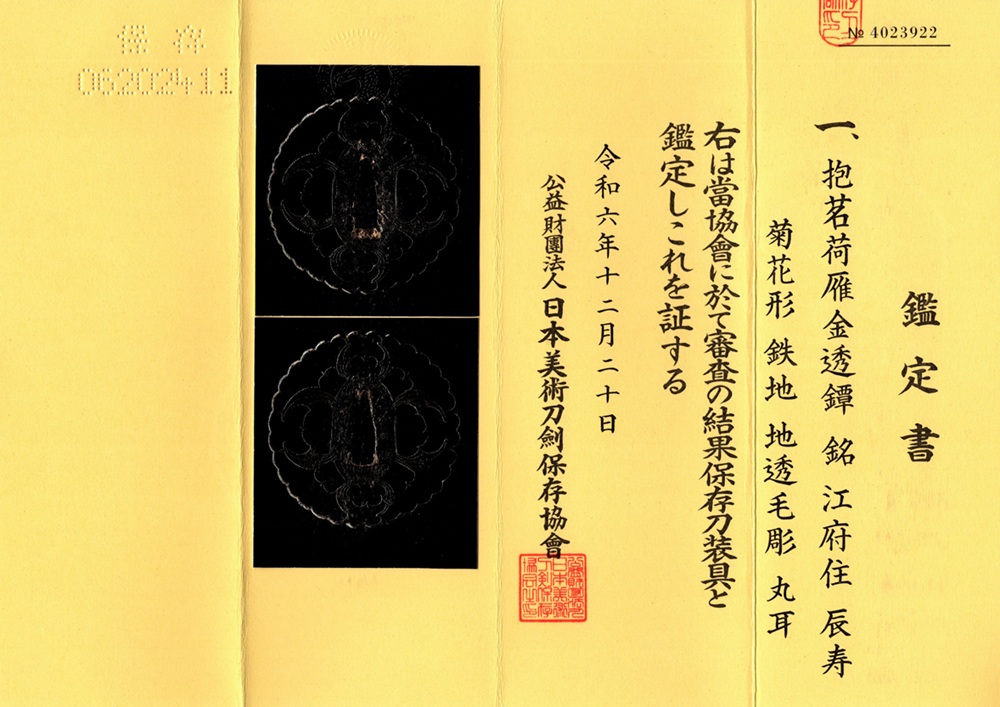 № 4023922
鑑定書
一、抱茗荷雁金透鐔 銘 江府住 辰寿
菊花形 鉄地 地透毛彫 丸耳
右は當協會に於て審査の結果保存刀装具と
鑑定しこれを証する
令和六年十二月二十日
公益財團法人 日本美術刀劍保存協會
保存
06202411